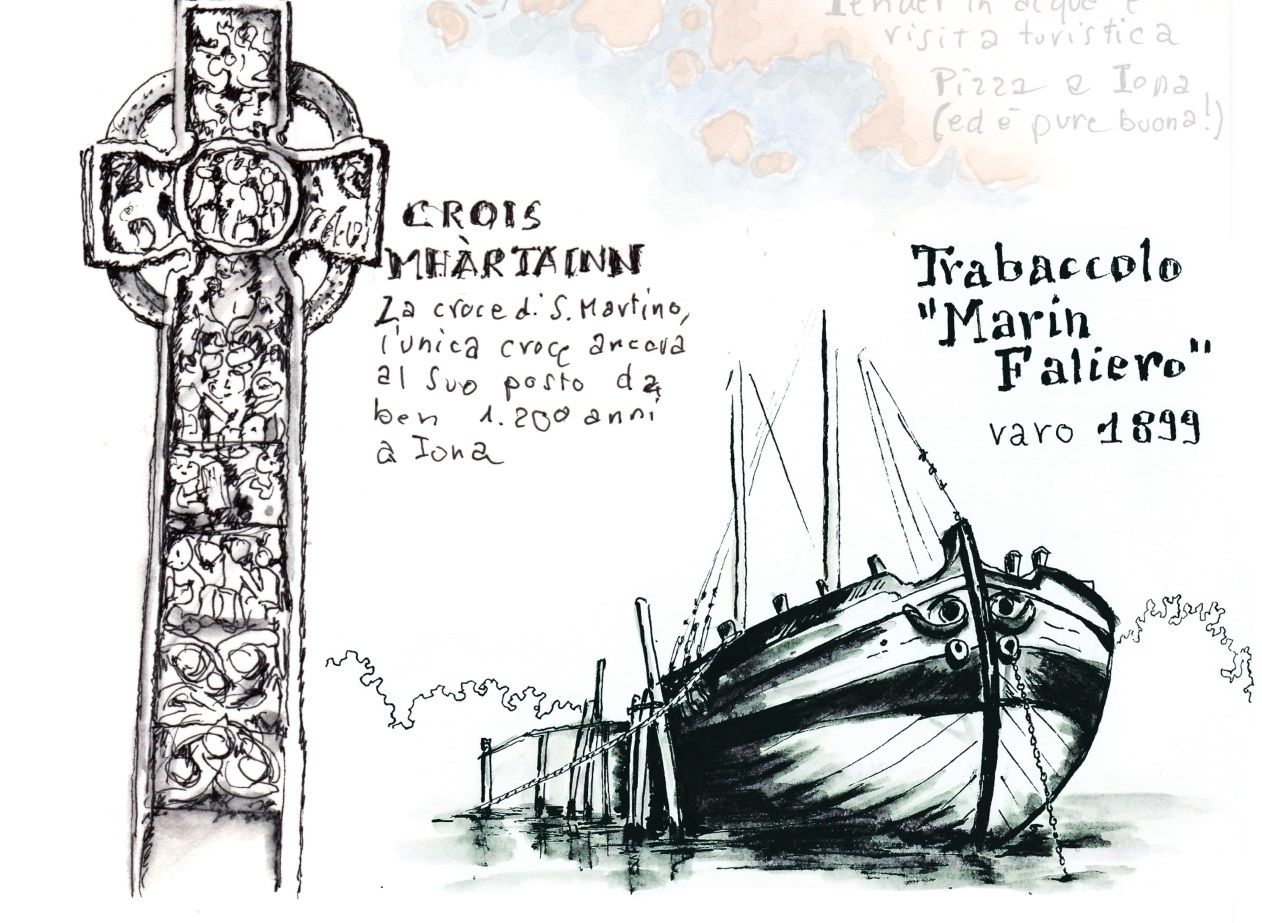 Tender in acque e
visita turistica
Pizza a Iona
(ed è pure buona!)
CROIS
MHÀRTAINN
La croce di S. Martino,
l'unica croce ancora
al suo posto da
ben 1.200 anni
a Iona
Trabaccolo
"Marin
Faliero"
varo 1899